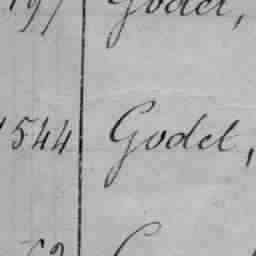 197 Godet,
1544 Godet,